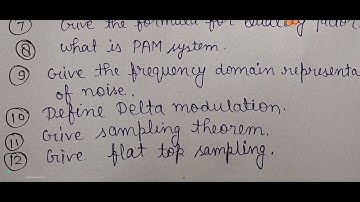 7 Give the formula for Quality factor
8 what is PAM system.
9 Give the frequency domain representa
of noise.
10 Define Delta modulation.
11 Give sampling theorem.
12 Give flat top sampling.